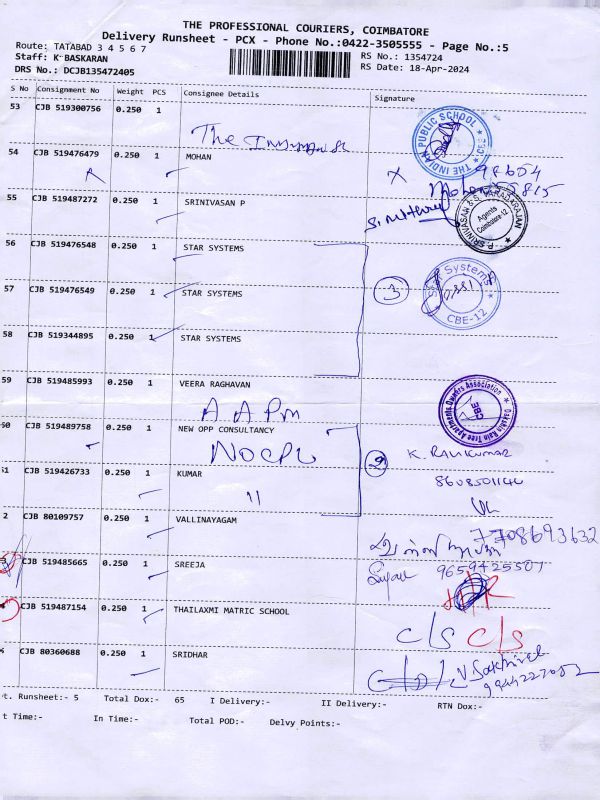 THE PROFESSIONAL COURIERS, COIMBATORE
Delivery Runsheet - PCX - Phone No.:0422-3505555 - Page No.:5
Route: TATABAD 3 4 5 6 7
RS No.: 1354724
Staff: K BASKARAN
RS Date: 18-Apr-2024
DRS No.: DCJB135472405
S No Consignment No Weight PCS Consignee Details Signature
53 CJB 519300756 0.250 1
The
THE INDIAN PUBLIC SCHOOL CBE
54 CJB 519476479 0.250 1 MOHAN
X
55 CJB 519487272 0.250 1 SRINIVASAN P
P SRINIVASAN & S. VARADARAJAN
Agents
Coimbatore-12
56 CJB 519476548 0.250 1 STAR SYSTEMS
57 CJB 519476549 0.250 1 STAR SYSTEMS
3
Star Systems
CBE-12
58 CJB 519344895 0.250 1 STAR SYSTEMS
59 CJB 519485993 0.250 1 VEERA RAGHAVAN
A A Pm
Rain Tree Apartments Owners Association
CBE
60 CJB 519489758 0.250 1 NEW OPP CONSULTANCY
NOCPL
2
K. RAVIKUMAR
61 CJB 519426733 0.250 1 KUMAR
"
2 CJB 80109757 0.250 1 VALLINAYAGAM
7708693632
CJB 519485665 0.250 1 SREEJA
9659425507
CJB 519487154 0.250 1 THAILAXMI MATRIC SCHOOL
C/S C/S
CJB 80360688 0.250 1 SRIDHAR
t. Runsheet:- 5 Total Dox:- 65 I Delivery:- II Delivery:- RTN Dox:-
t Time:- In Time:- Total POD:- Delvy Points:-